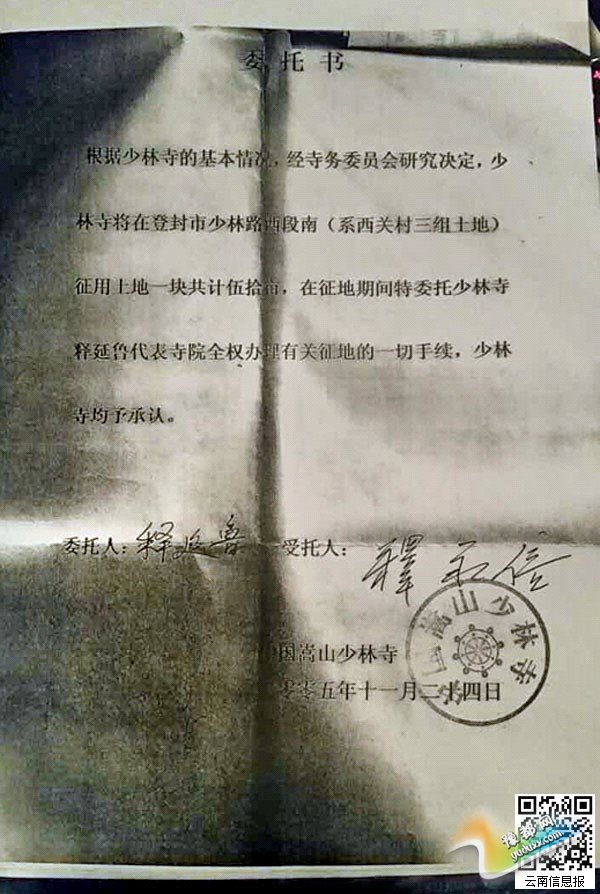 委托书
根据少林寺的基本情况，经寺务委员会研究决定，少
林寺将在登封市少林路西段南（系西关村三组土地）
征用土地一块共计伍拾亩，在征地期间特委托少林寺
释延鲁代表寺院全权办理有关征地的一切手续，少林
寺均予承认。
委托人：释延鲁 受托人：釋永信
国嵩山少林寺
零零五年十一月二十四日
嵩山少林寺
豫都网
yuduxx.com
云南信息报